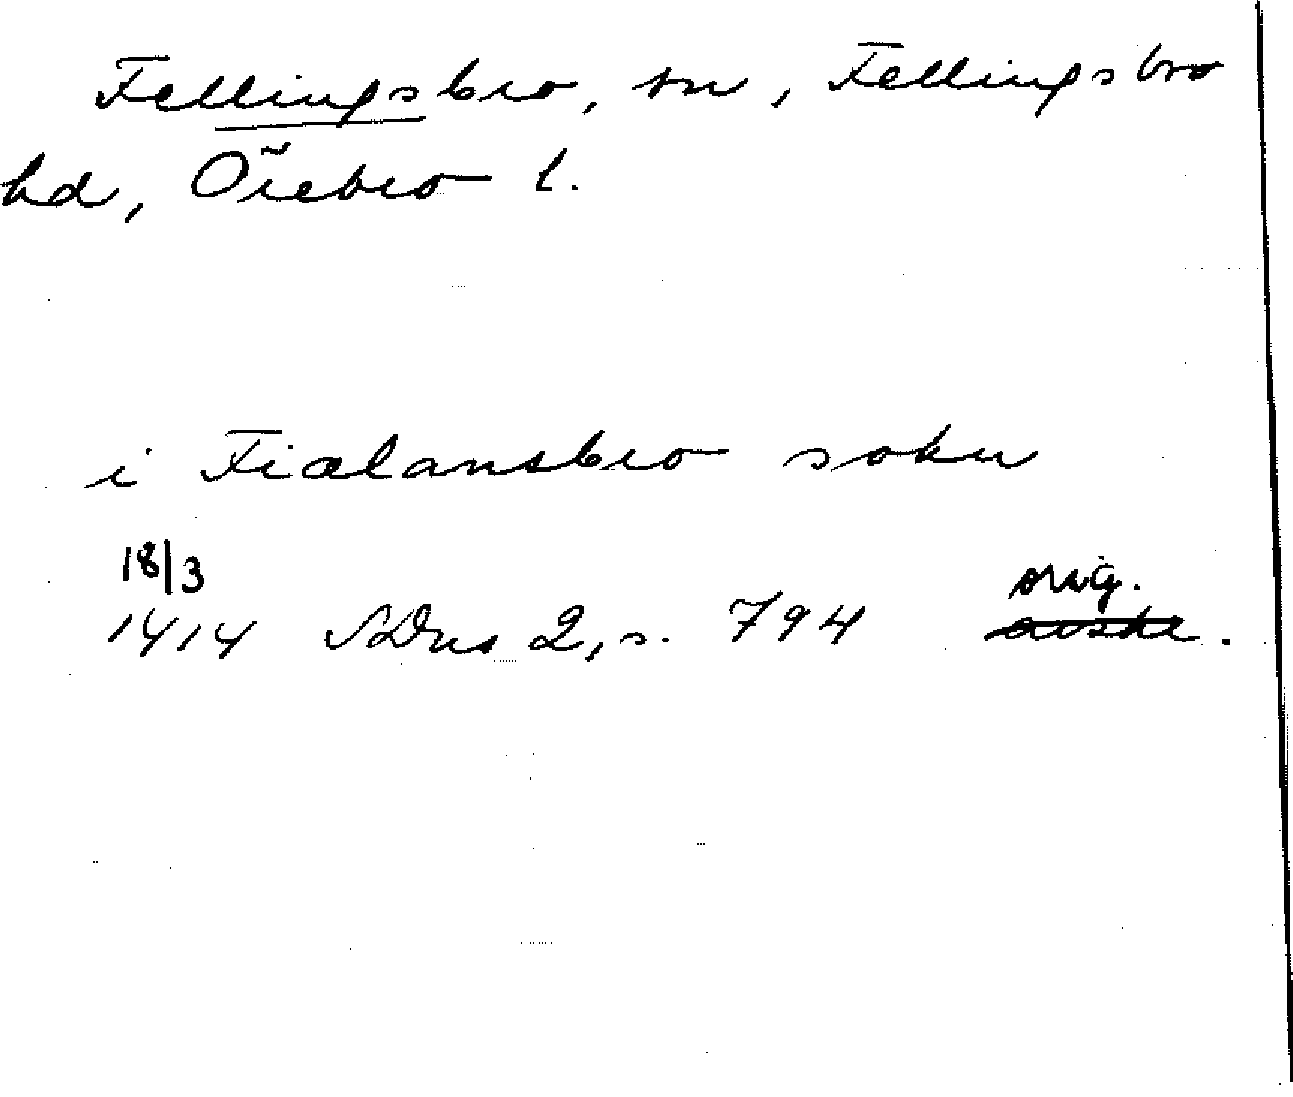 Fellingsbro, sn, Fellingsbro
hd, Örebro l.
i Fiælansbro sokn
18/3
orig.
1414 SDns 2, s. 794 avskr.